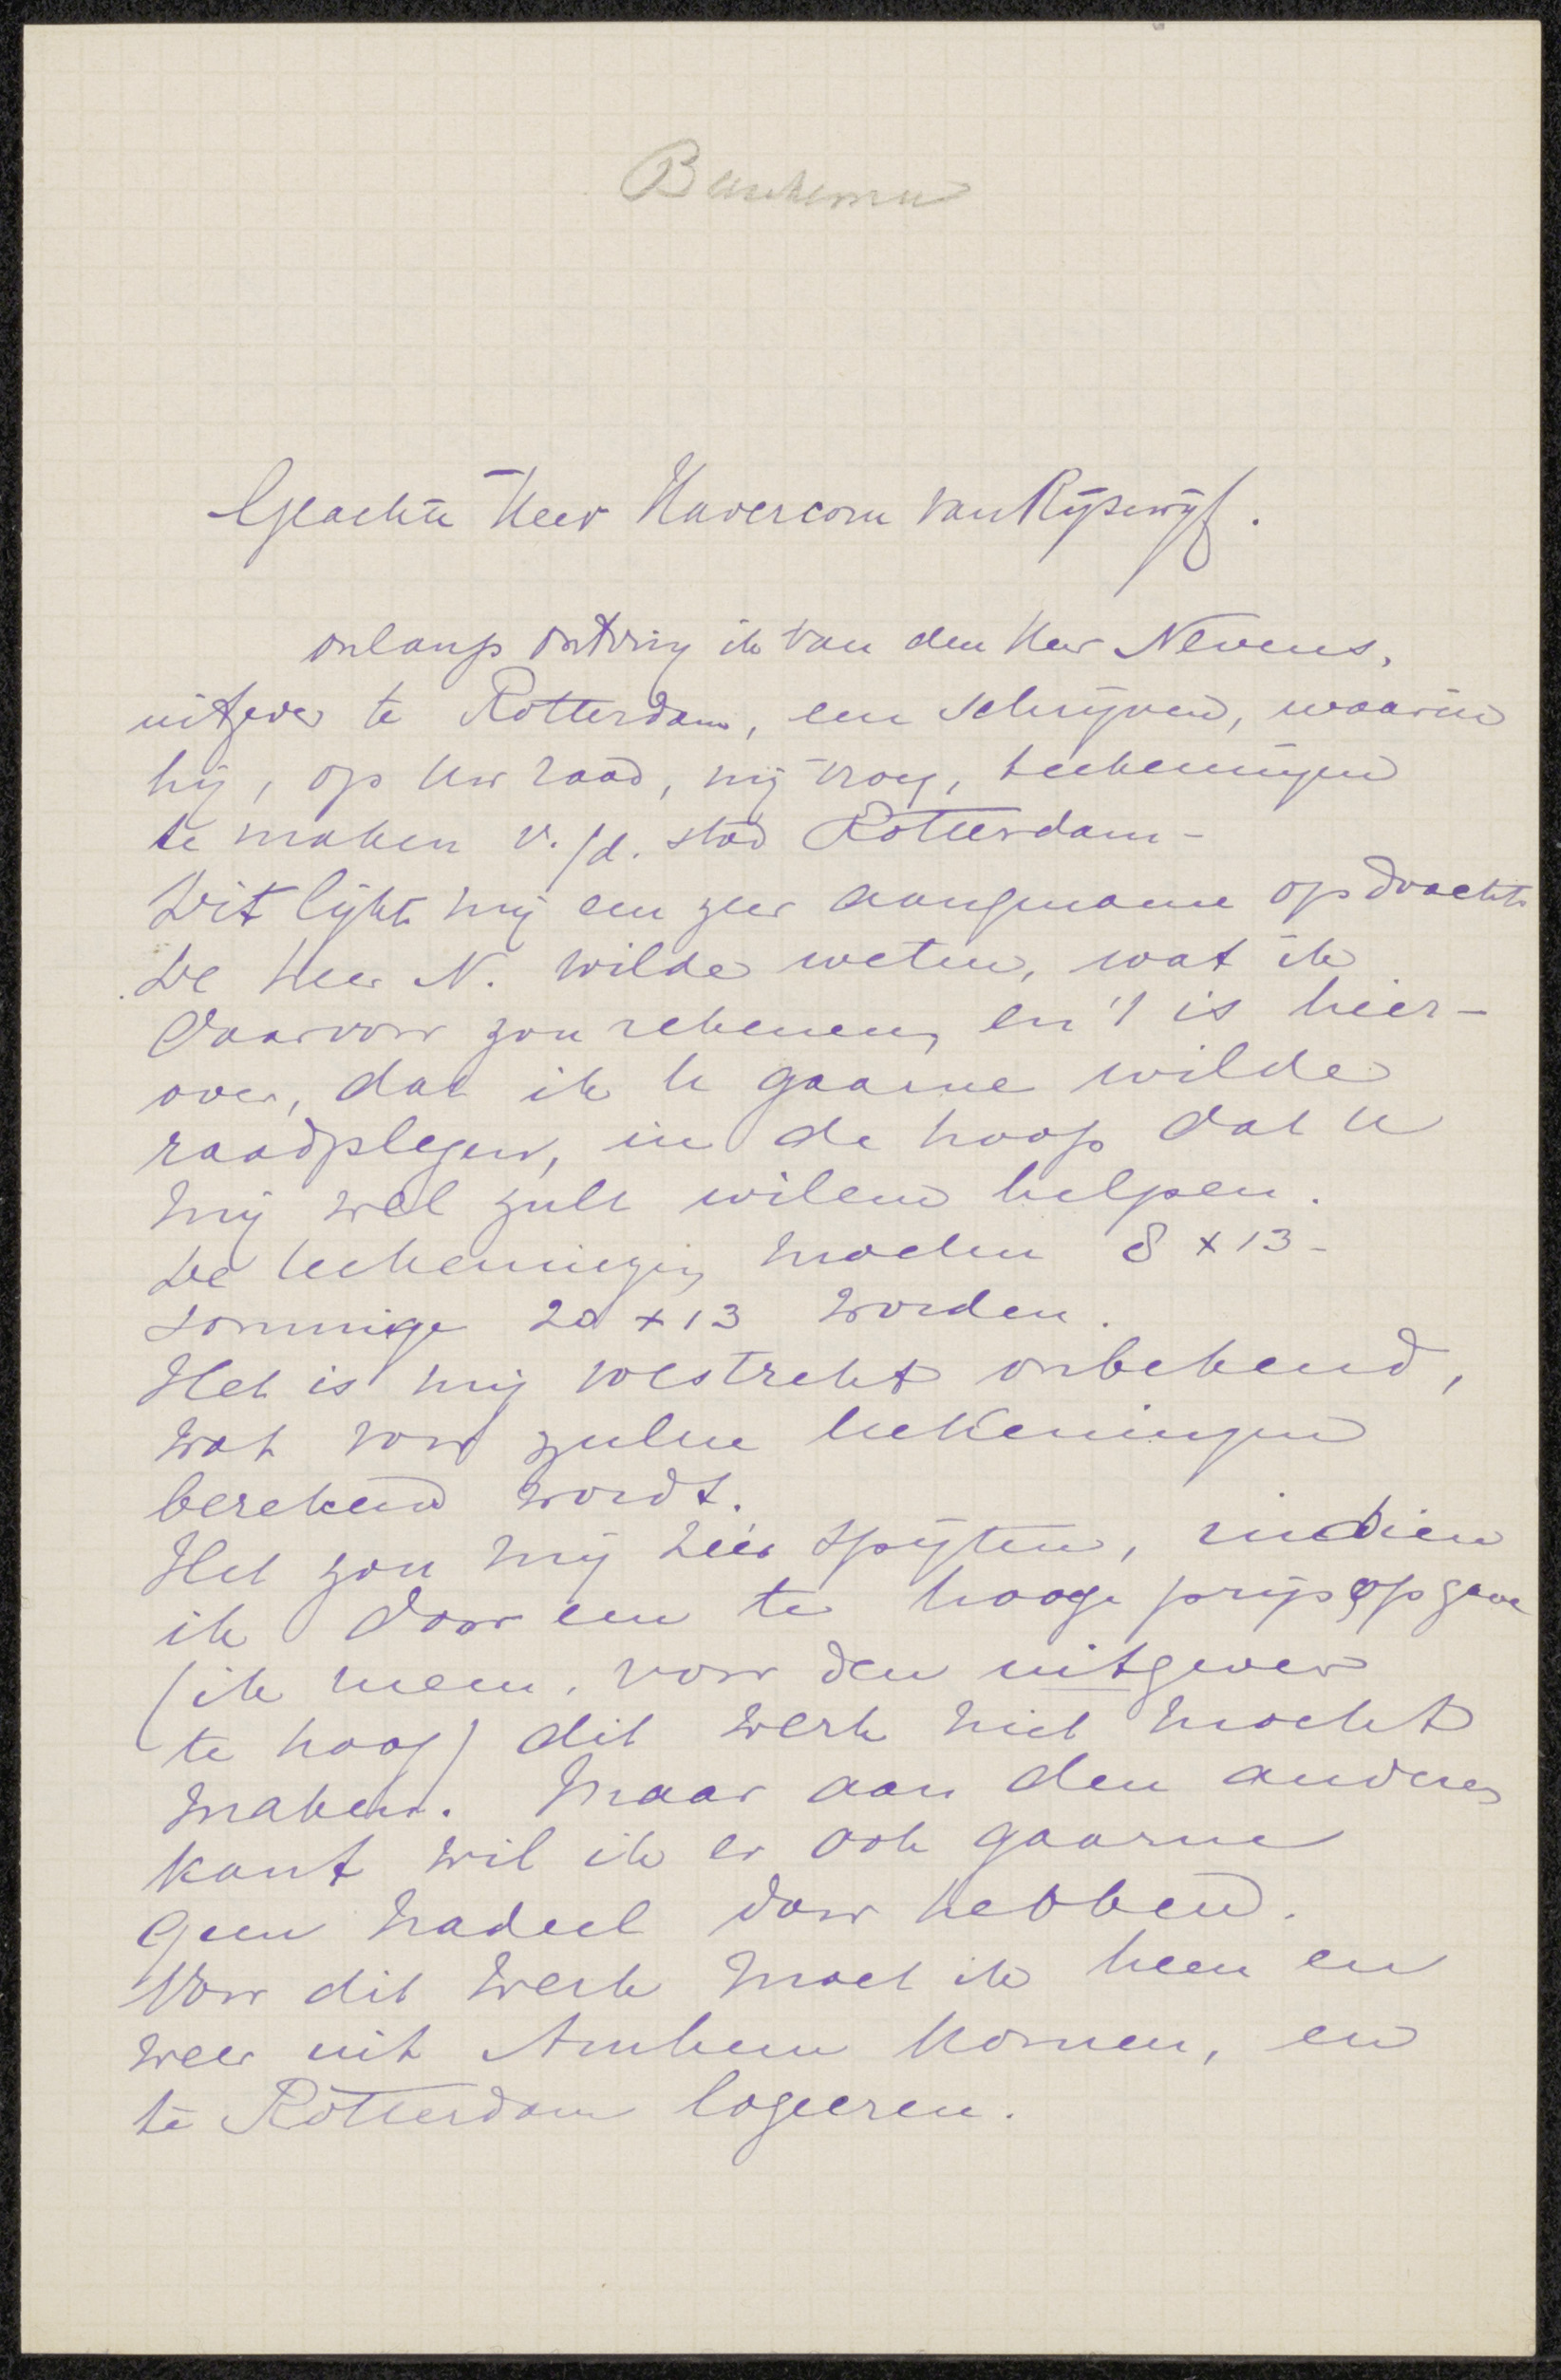 Geachte Heer Havercorn van Rijsewijk.
onlangs ontving ik van den Heer Nevens,
uitgever te Rotterdam, een schrijven, waarin
hij, op Uw raad, mij vroeg, teekeningen
te maken v./d. stad Rotterdam –
Dit lijkt mij een zeer aangename opdracht
De Heer N. wilde weten, wat ik
daarvoor zou rekenen, en 't is hier-
over, dat ik U gaarne wilde
raadplegen, in de hoop dat U
mij wel zult willen helpen.
De teekeningen moeten 8 x 13 –
sommige 20 x 13 worden.
Het is mij volstrekt onbekend,
wat voor zulke teekeningen
berekend wordt.
Het zou mij zéér spijten, indien
ik door een te hooge prijsopgave
(ik meen, voor den uitgever
te hoog) dit werk niet mocht
maken. Maar aan den anderen
kant wil ik er ook gaarne
geen nadeel door hebben.
Voor dit werk moet ik heen en
weer uit Arnhem komen, en
te Rotterdam logeeren.